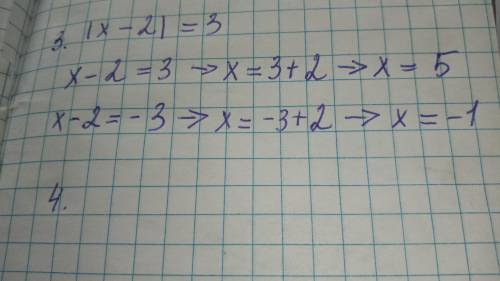 3. |x-2| = 3
x-2 = 3 → x = 3+2 → x = 5
x-2 = -3 → x = -3+2 → x = -1
4.